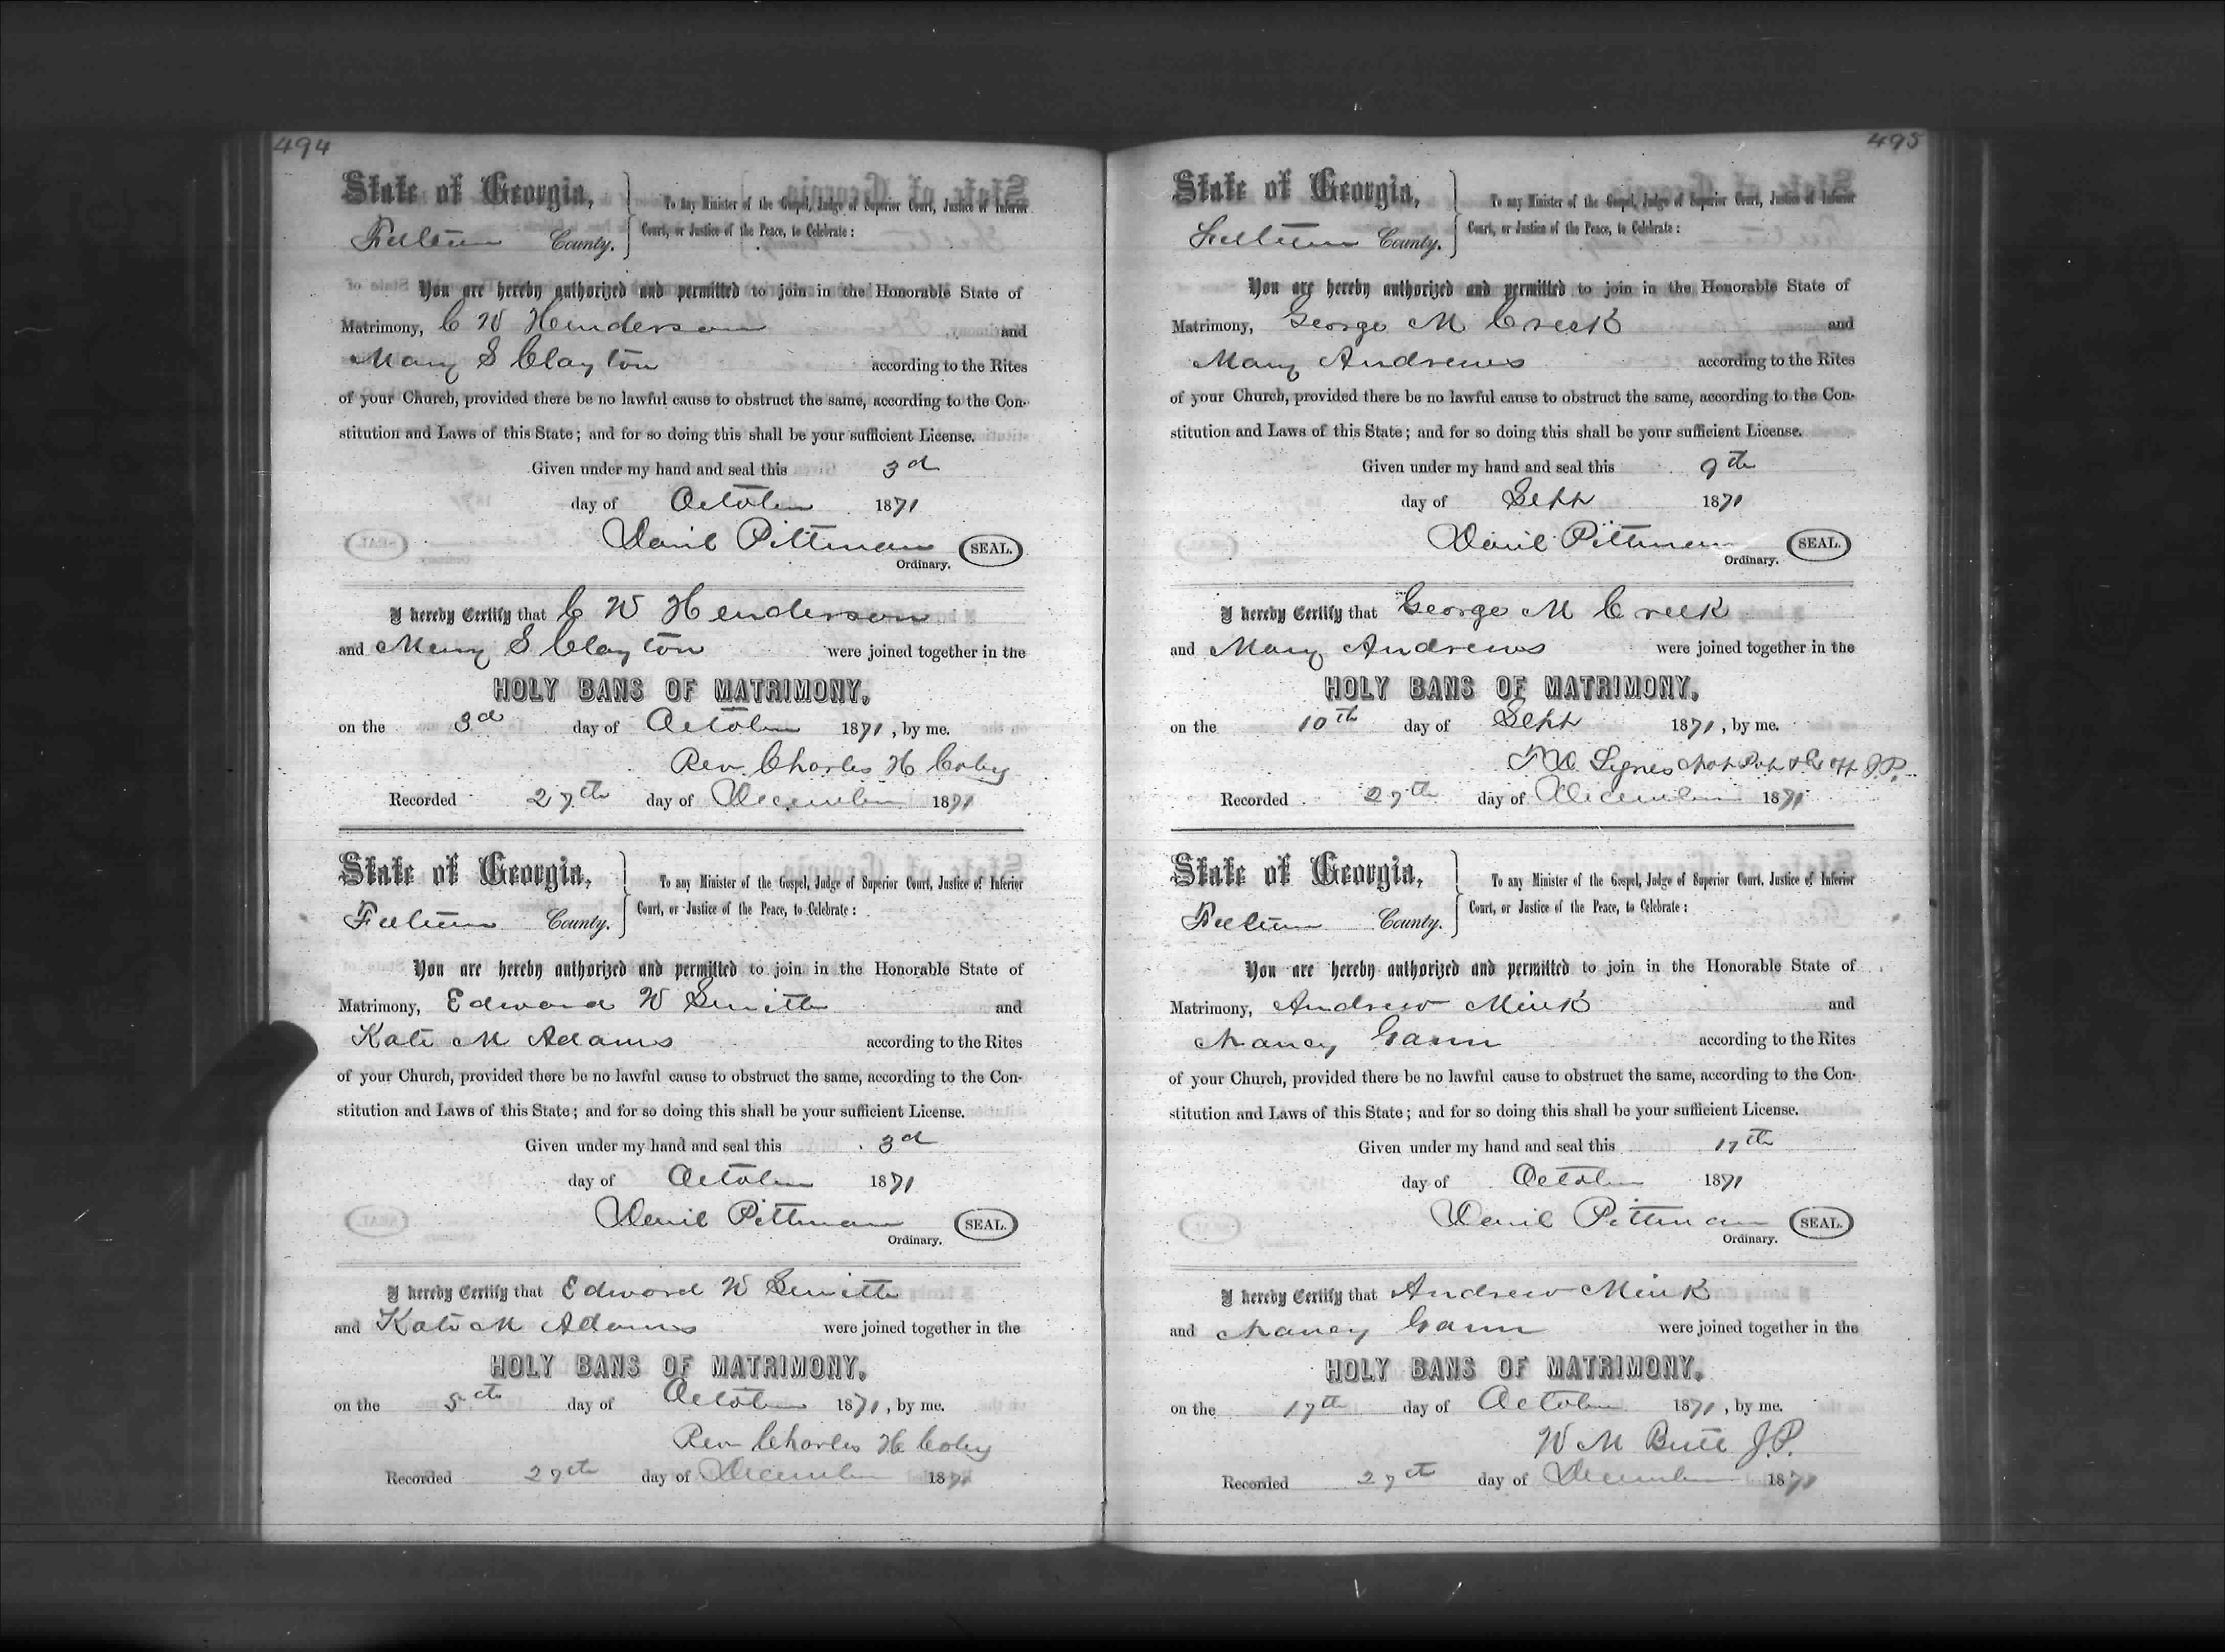 494
State of Georgia,
Fulton County.
To any Minister of the Gospel, Judge of Superior Court, Justice of Inferior
Court, or Justice of the Peace, to Celebrate :
You are hereby authorized and permitted to join in the Honorable State of
Matrimony, C W Henderson and
Mary S Clayton according to the Rites
of your Church, provided there be no lawful cause to obstruct the same, according to the Con-
stitution and Laws of this State ; and for so doing this shall be your sufficient License.
Given under my hand and seal this 3d
day of October 1871
Daniel Pittman SEAL.
Ordinary.
I hereby Certify that C W Henderson
and Mary S Clayton were joined together in the
HOLY BANS OF MATRIMONY,
on the 3d day of October 1871, by me.
Rev. Charles H Coley
Recorded 27th day of December 1871
State of Georgia,
Fulton County.
To any Minister of the Gospel, Judge of Superior Court, Justice of Inferior
Court, or Justice of the Peace, to Celebrate :
You are hereby authorized and permitted to join in the Honorable State of
Matrimony, Edward W Smith and
Kate M Adams according to the Rites
of your Church, provided there be no lawful cause to obstruct the same, according to the Con-
stitution and Laws of this State ; and for so doing this shall be your sufficient License.
Given under my hand and seal this 3d
day of October 1871
Daniel Pittman SEAL.
Ordinary.
I hereby Certify that Edward W Smith
and Kate M Adams were joined together in the
HOLY BANS OF MATRIMONY,
on the 5th day of October 1871, by me.
Rev Charles H Coley
Recorded 27th day of December 1871
495
State of Georgia,
Fulton County.
To any Minister of the Gospel, Judge of Superior Court, Justice of Inferior
Court, or Justice of the Peace, to Celebrate :
You are hereby authorized and permitted to join in the Honorable State of
Matrimony, George M Creek and
Mary Andrews according to the Rites
of your Church, provided there be no lawful cause to obstruct the same, according to the Con-
stitution and Laws of this State ; and for so doing this shall be your sufficient License.
Given under my hand and seal this 9th
day of Sept 1871
Daniel Pittman SEAL.
Ordinary.
I hereby Certify that George M Creek
and Mary Andrews were joined together in the
HOLY BANS OF MATRIMONY,
on the 10th day of Sept 1871, by me.
J.P.
Recorded 27th day of December 1871
State of Georgia,
Fulton County.
To any Minister of the Gospel, Judge of Superior Court, Justice of Inferior
Court, or Justice of the Peace, to Celebrate :
You are hereby authorized and permitted to join in the Honorable State of
Matrimony, Andrew Mink and
Nancy Gann according to the Rites
of your Church, provided there be no lawful cause to obstruct the same, according to the Con-
stitution and Laws of this State ; and for so doing this shall be your sufficient License.
Given under my hand and seal this 17th
day of October 1871
Daniel Pittman SEAL.
Ordinary.
I hereby Certify that Andrew Mink
and Nancy Gann were joined together in the
HOLY BANS OF MATRIMONY,
on the 17th day of October 1871, by me.
W M Butt J.P.
Recorded 27th day of December 1871